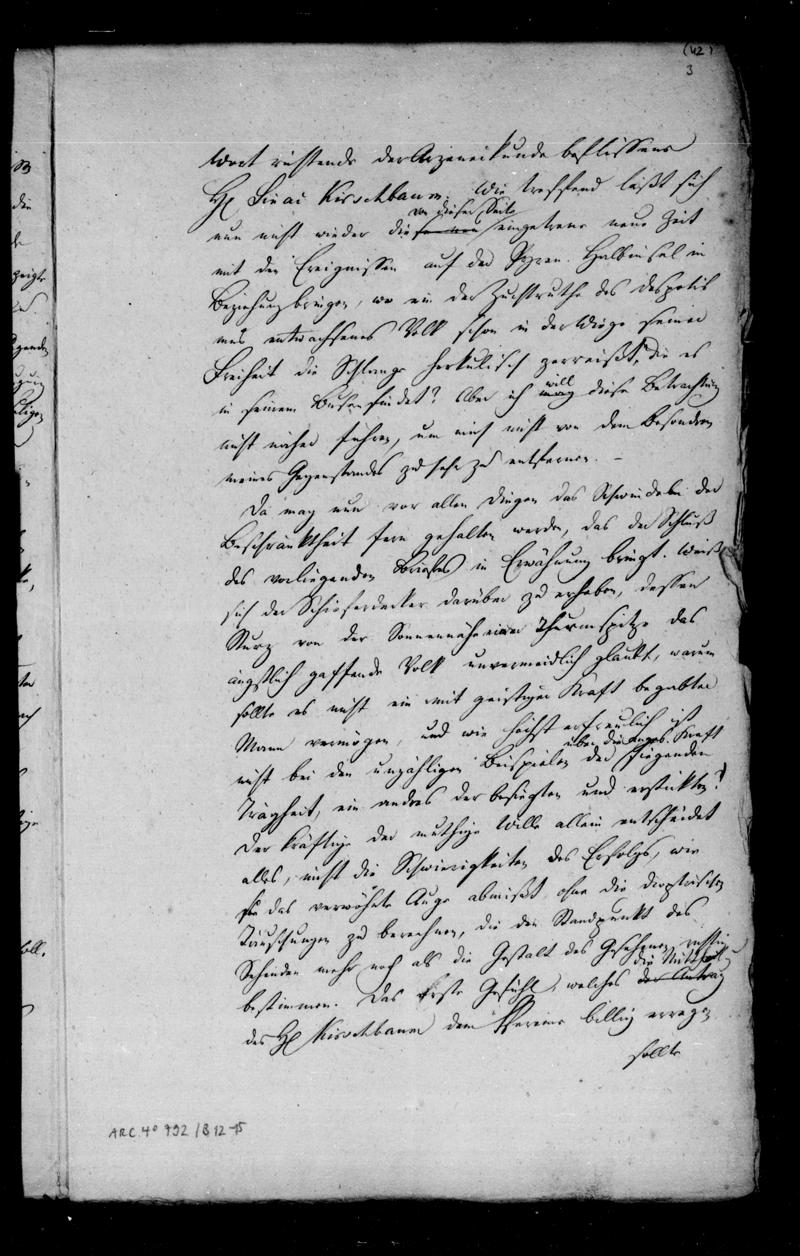 (42)
3
Wort rufende der Arzeneikunde beflissene
H. Sinai Kirschbaum. Wie treffend läßt sich
von dieser Seite
nun nicht wieder die eingetrene neue Zeit
mit den Ereignissen auf der Pyren. Halbinsel in
Beziehung bringen, wo ein der Zuchtruthe des Despotis
mus entwachsenes Volk schon in der Wiege seiner
Freiheit die Schlange herkulisch zerreißt, die es
in seinem Busen findet? Aber ich will diese Betrachtung
nicht näher führen, um mich nicht von dem Besondren
meines Gegenstandes zu sehr zu entfernen. –
Da mag nun vor allen Dingen das Schwindeln der
Beschränktheit fern gehalten werden, das der Schluß
des vorliegenden Briefes in Erwähnung bringt. Weiß
sich der Schieferdecker darüber zu erheben, dessen
Sturz von der Sonnennähe einer Thurmspitze das
ängstlich gaffende Volk unvermeidlich glaubt, warum
sollte es nicht ein mit geistiger Kraft begabter
Mann vermögen, und wie höchst erfreulich ist
nicht bei den unzähligen Beispielen der siegenden
über die Kraft
Trägheit, ein andres der besiegten und erstickten!
Der kräftige der muthige Wille allein entscheidet
alles, nicht die Schwierigkeiten des Erfolgs, wie
sie das verwöhnte Auge abmißt ohne die dioptrischen
Täuschungen zu berechnen, die den Standpunkt des
Sehenden mehr noch als die Gestalt des Gesehenen
bestimmen. Das erste Gefühl, welches der Antrag
des H. Kirschbaum dem Vereine billig erregen
sollte
ARC. 4° 792 / B 12-15